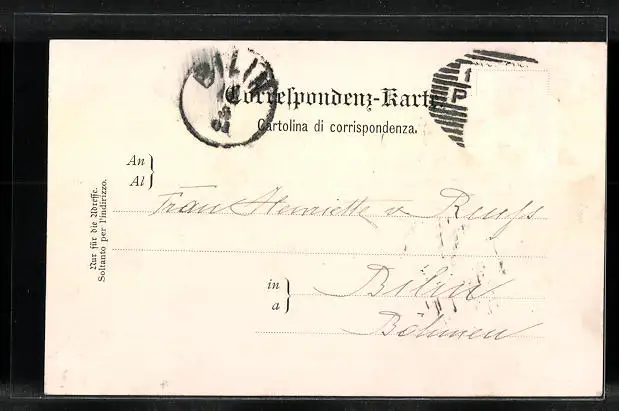 BILIN
Correspondenz-Karte
Cartolina di corrispondenza.
An
Al
Nur für die Adresse.
Soltanto per l'indirizzo.
Frau Henriette v Reuss
in
a
Bilin
Böhmen